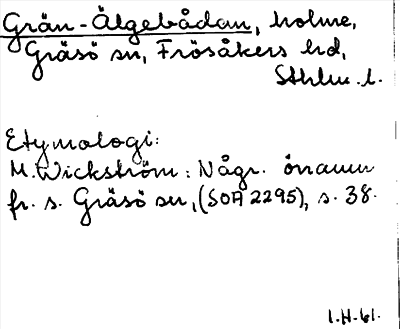 Grän-Älgebådan, holme,
Gräsö sn, Frösåkers hd,
Sthlm. l.
Etymologi:
M. Wickström: Någr. önamn
fr. s. Gräsö sn, (SOA 2295), s. 38.
1.H.61.